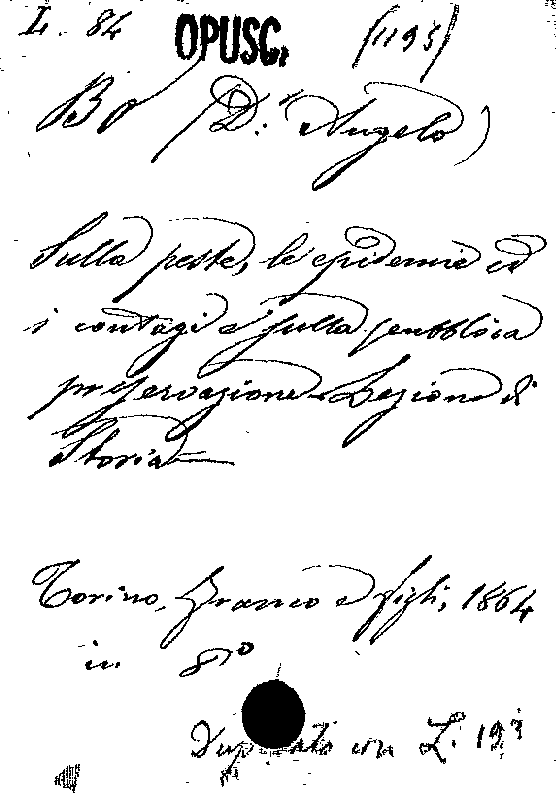 L. 84 OPUSC. (1195)
Bò (D.r Angelo)
Sulla peste, le epidemie ed
i contagi e sulla pubblica
preservazione. Lezione di
Storia
Torino, Franco e figli, 1864
in 8vo
Duplicato con L. 193